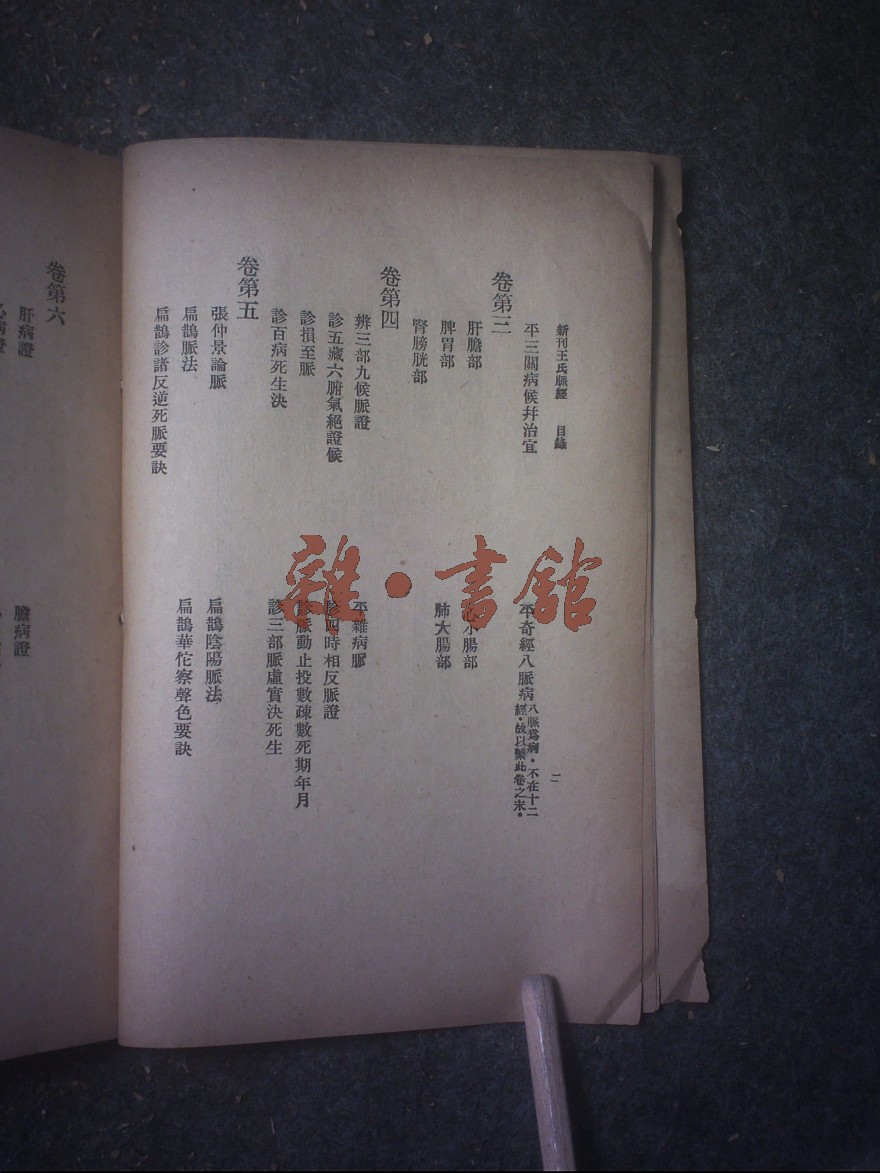 新刊王氏脈經 目錄 二
平三關病候幷治宜 平奇經八脈病八脈爲病·不在十二
經·故以繫此卷之末·
卷第三
肝膽部 心小腸部
脾胃部 肺大腸部
腎膀胱部
卷第四
辨三部九候脈證 平雜病脈
診五藏六腑氣絕證候 診四時相反脈證
診損至脈 診脈動止投數疎數死期年月
診百病死生決 診三部脈虛實決死生
卷第五
張仲景論脈 扁鵲陰陽脈法
扁鵲脈法 扁鵲華佗察聲色要訣
扁鵲診諸反逆死脈要訣
卷第六
肝病證 膽病證
心病證
雜·書館